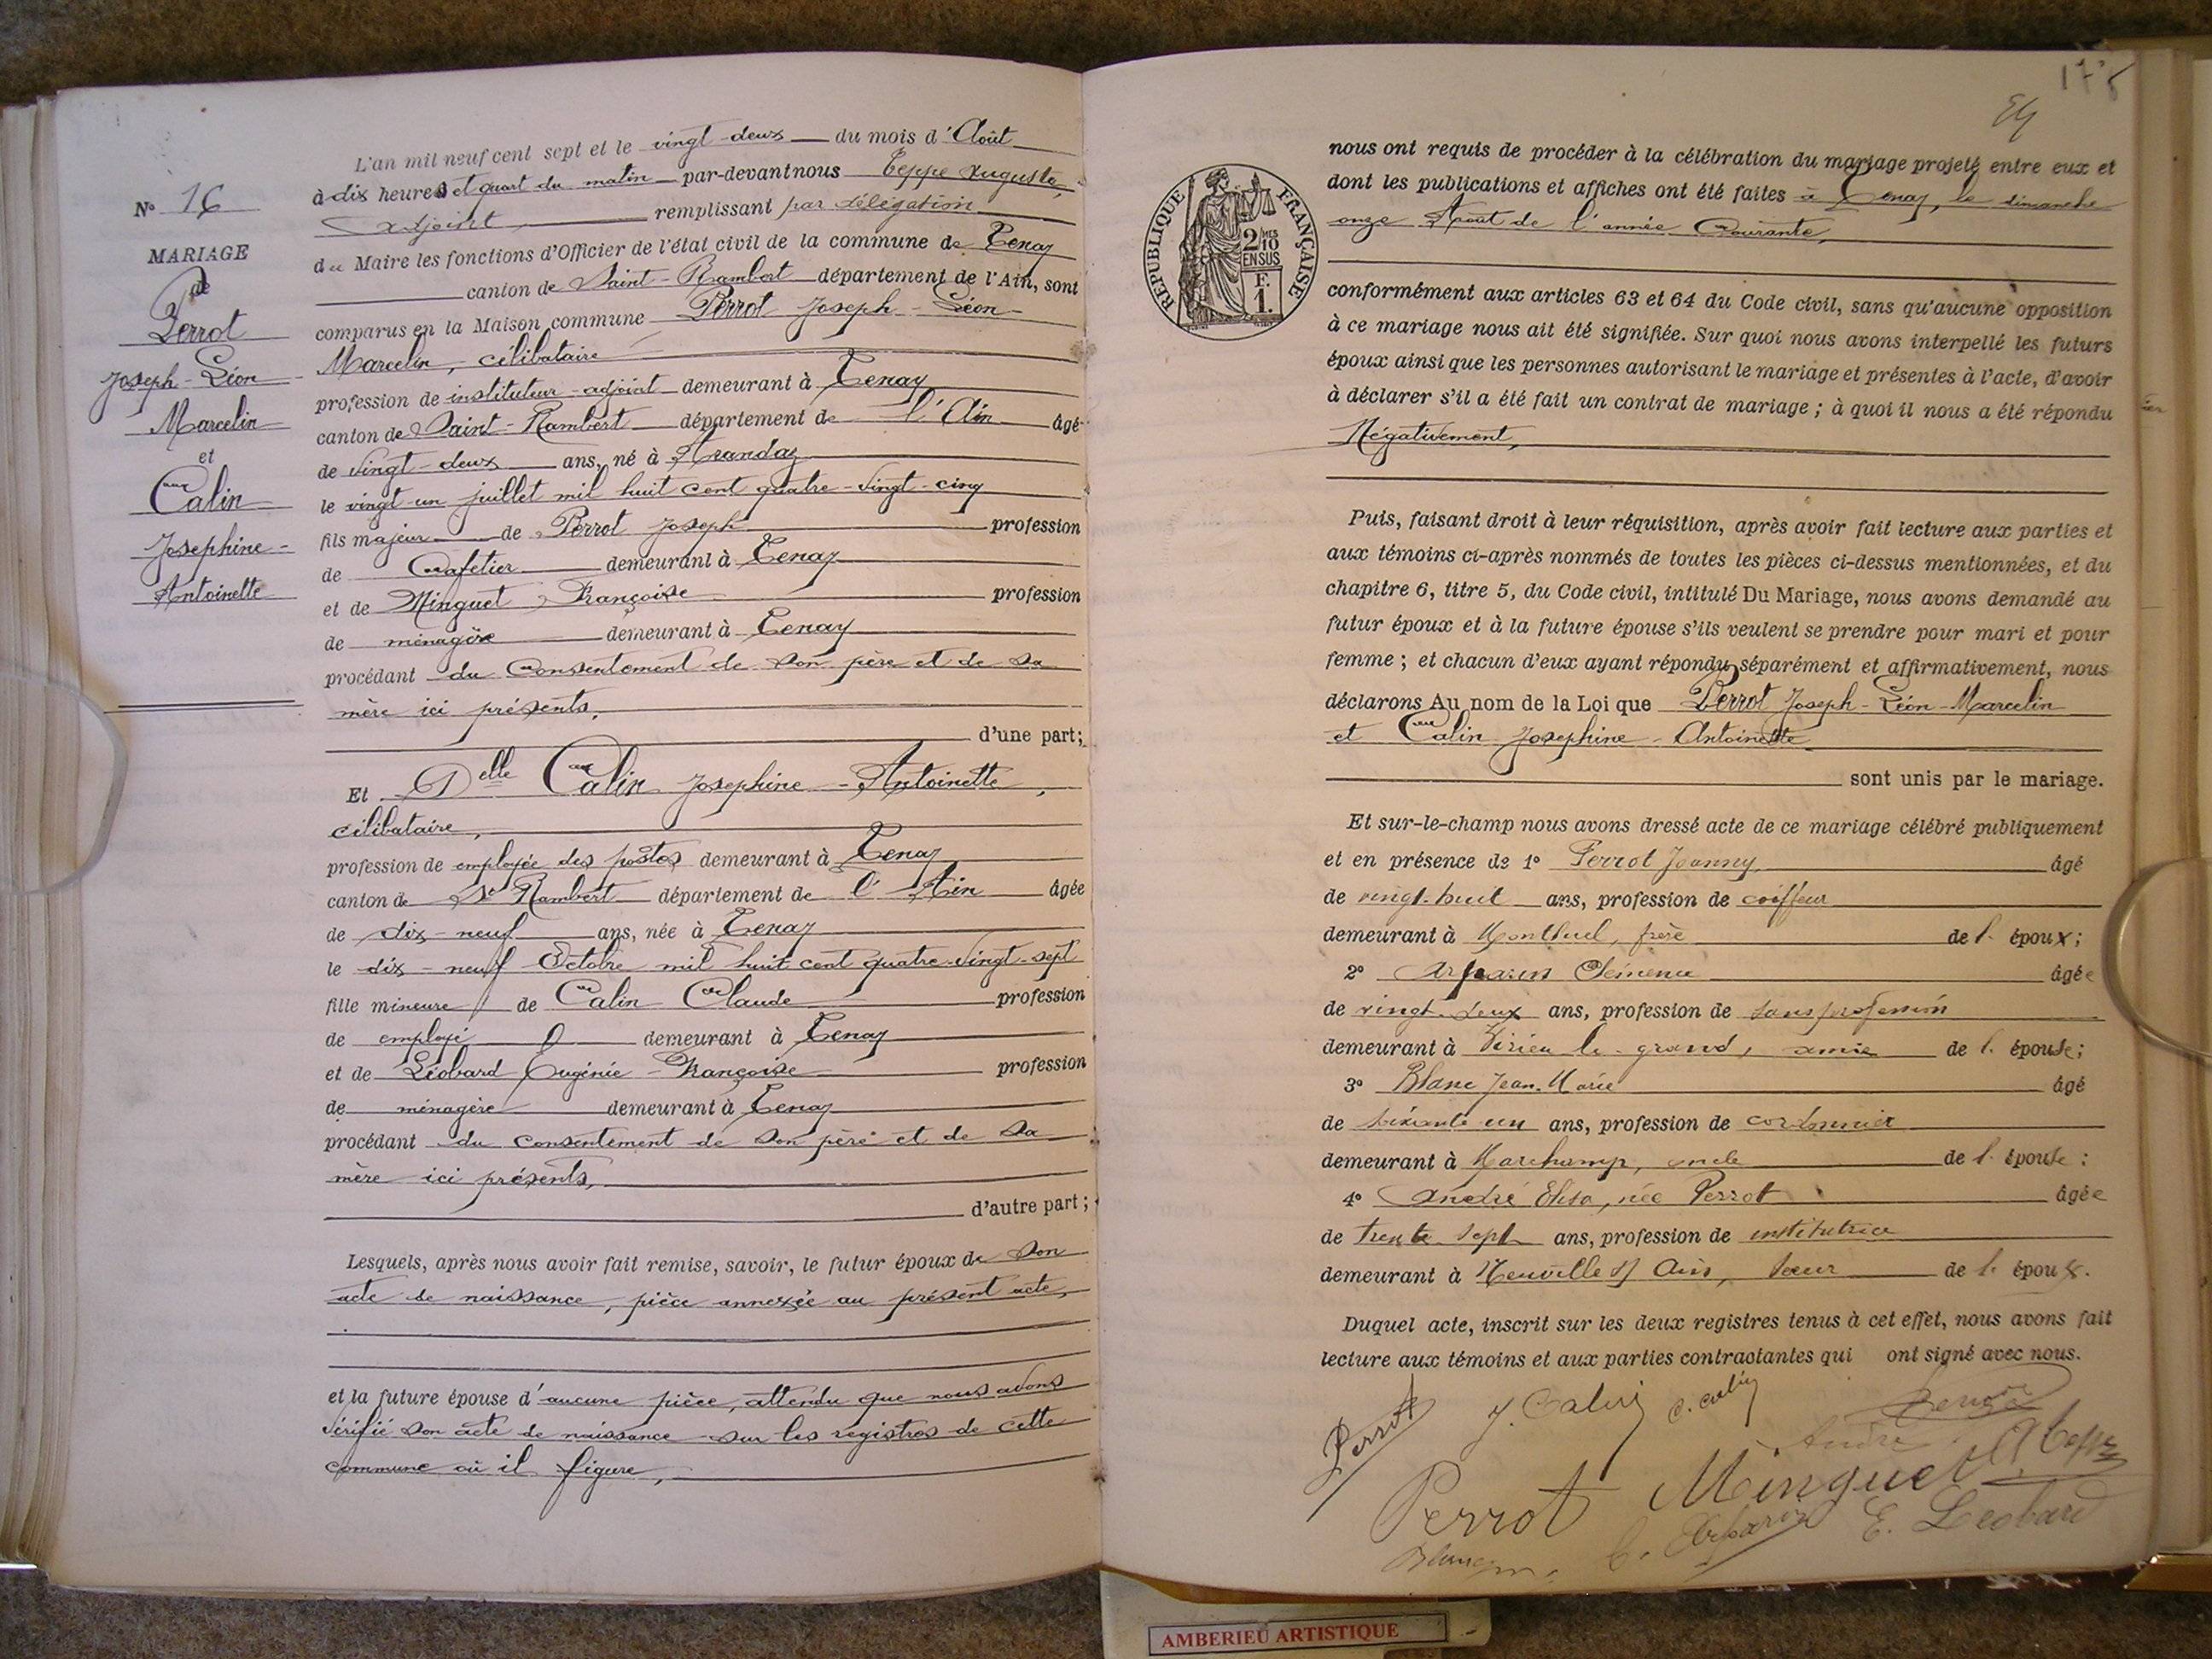 N° 16
MARIAGE
de
Perrot
Joseph-Léon
Marcelin
et
Calin
Josephine-
Antoinette
L'an mil neuf cent sept et le vingt-deux du mois d'Août
à dix heures et quart du matin par-devant nous Teppe Auguste,
adjoint, remplissant par délégation
du Maire les fonctions d'Officier de l'état civil de la commune de Tenay
canton de Saint-Rambert département de l'Ain, sont
comparus en la Maison commune Perrot Joseph-Léon-
Marcelin, célibataire
profession de instituteur-adjoint demeurant à Tenay
canton de Saint-Rambert département de l'Ain âgé
de vingt-deux ans, né à Arandaz
le vingt-un juillet mil huit cent quatre-vingt-cinq
fils majeur de Perrot Joseph profession
de Cafetier demeurant à Tenay
et de Minguet Françoise profession
de ménagère demeurant à Tenay
procédant du Consentement de son père et de sa
mère ici présents,
d'une part;
Et Delle Calin Josephine-Antoinette,
célibataire,
profession de employée des postes demeurant à Tenay
canton de St Rambert département de l'Ain âgée
de dix-neuf ans, née à Tenay
le dix-neuf Octobre mil huit cent quatre-vingt-sept
fille mineure de Calin Claude profession
de employé demeurant à Tenay
et de Léobard Eugénie-Françoise profession
de ménagère demeurant à Tenay
procédant du consentement de son père et de sa
mère ici présents,
d'autre part;
Lesquels, après nous avoir fait remise, savoir, le futur époux de son
acte de naissance, pièce annexée au présent acte,
et la future épouse d'aucune pièce, attendu que nous avons
vérifié son acte de naissance sur les registres de cette
commune où il figure,
178
RÉPUBLIQUE FRANÇAISE
2/10 MES
EN SUS
F.
1.
nous ont requis de procéder à la célébration du mariage projeté entre eux et
dont les publications et affiches ont été faites à Tenay, le dimanche
onze Août de l'année Courante,
conformément aux articles 63 et 64 du Code civil, sans qu'aucune opposition
à ce mariage nous ait été signifiée. Sur quoi nous avons interpellé les futurs
époux ainsi que les personnes autorisant le mariage et présentes à l'acte, d'avoir
à déclarer s'il a été fait un contrat de mariage ; à quoi il nous a été répondu
Négativement,
Puis, faisant droit à leur réquisition, après avoir fait lecture aux parties et
aux témoins ci-après nommés de toutes les pièces ci-dessus mentionnées, et du
chapitre 6, titre 5, du Code civil, intitulé Du Mariage, nous avons demandé au
futur époux et à la future épouse s'ils veulent se prendre pour mari et pour
femme ; et chacun d'eux ayant répondu séparément et affirmativement, nous
déclarons Au nom de la Loi que Perrot Joseph-Léon-Marcelin
et Calin Josephine-Antoinette
sont unis par le mariage.
Et sur-le-champ nous avons dressé acte de ce mariage célébré publiquement
et en présence de 1° Perrot Joanny, âgé
de vingt-huit ans, profession de coiffeur
demeurant à Montluel, frère de l'époux;
2° Arparin Clémence âgée
de vingt-deux ans, profession de sans profession
demeurant à Virieu-le-grand, amie de l'épouse;
3° Blanc Jean-Marie âgé
de soixante un ans, profession de cordonnier
demeurant à Marchamp, oncle de l'épouse;
4° André Elisa, née Perrot âgée
de trente sept ans, profession de institutrice
demeurant à Neuville s/ Ain, soeur de l'époux.
Duquel acte, inscrit sur les deux registres tenus à cet effet, nous avons fait
lecture aux témoins et aux parties contractantes qui ont signé avec nous.
Perrot J. Calin C. Calin
André A Teppe
Perrot Minguet
Blanc C. Arparin E. Leobard
AMBERIEU ARTISTIQUE